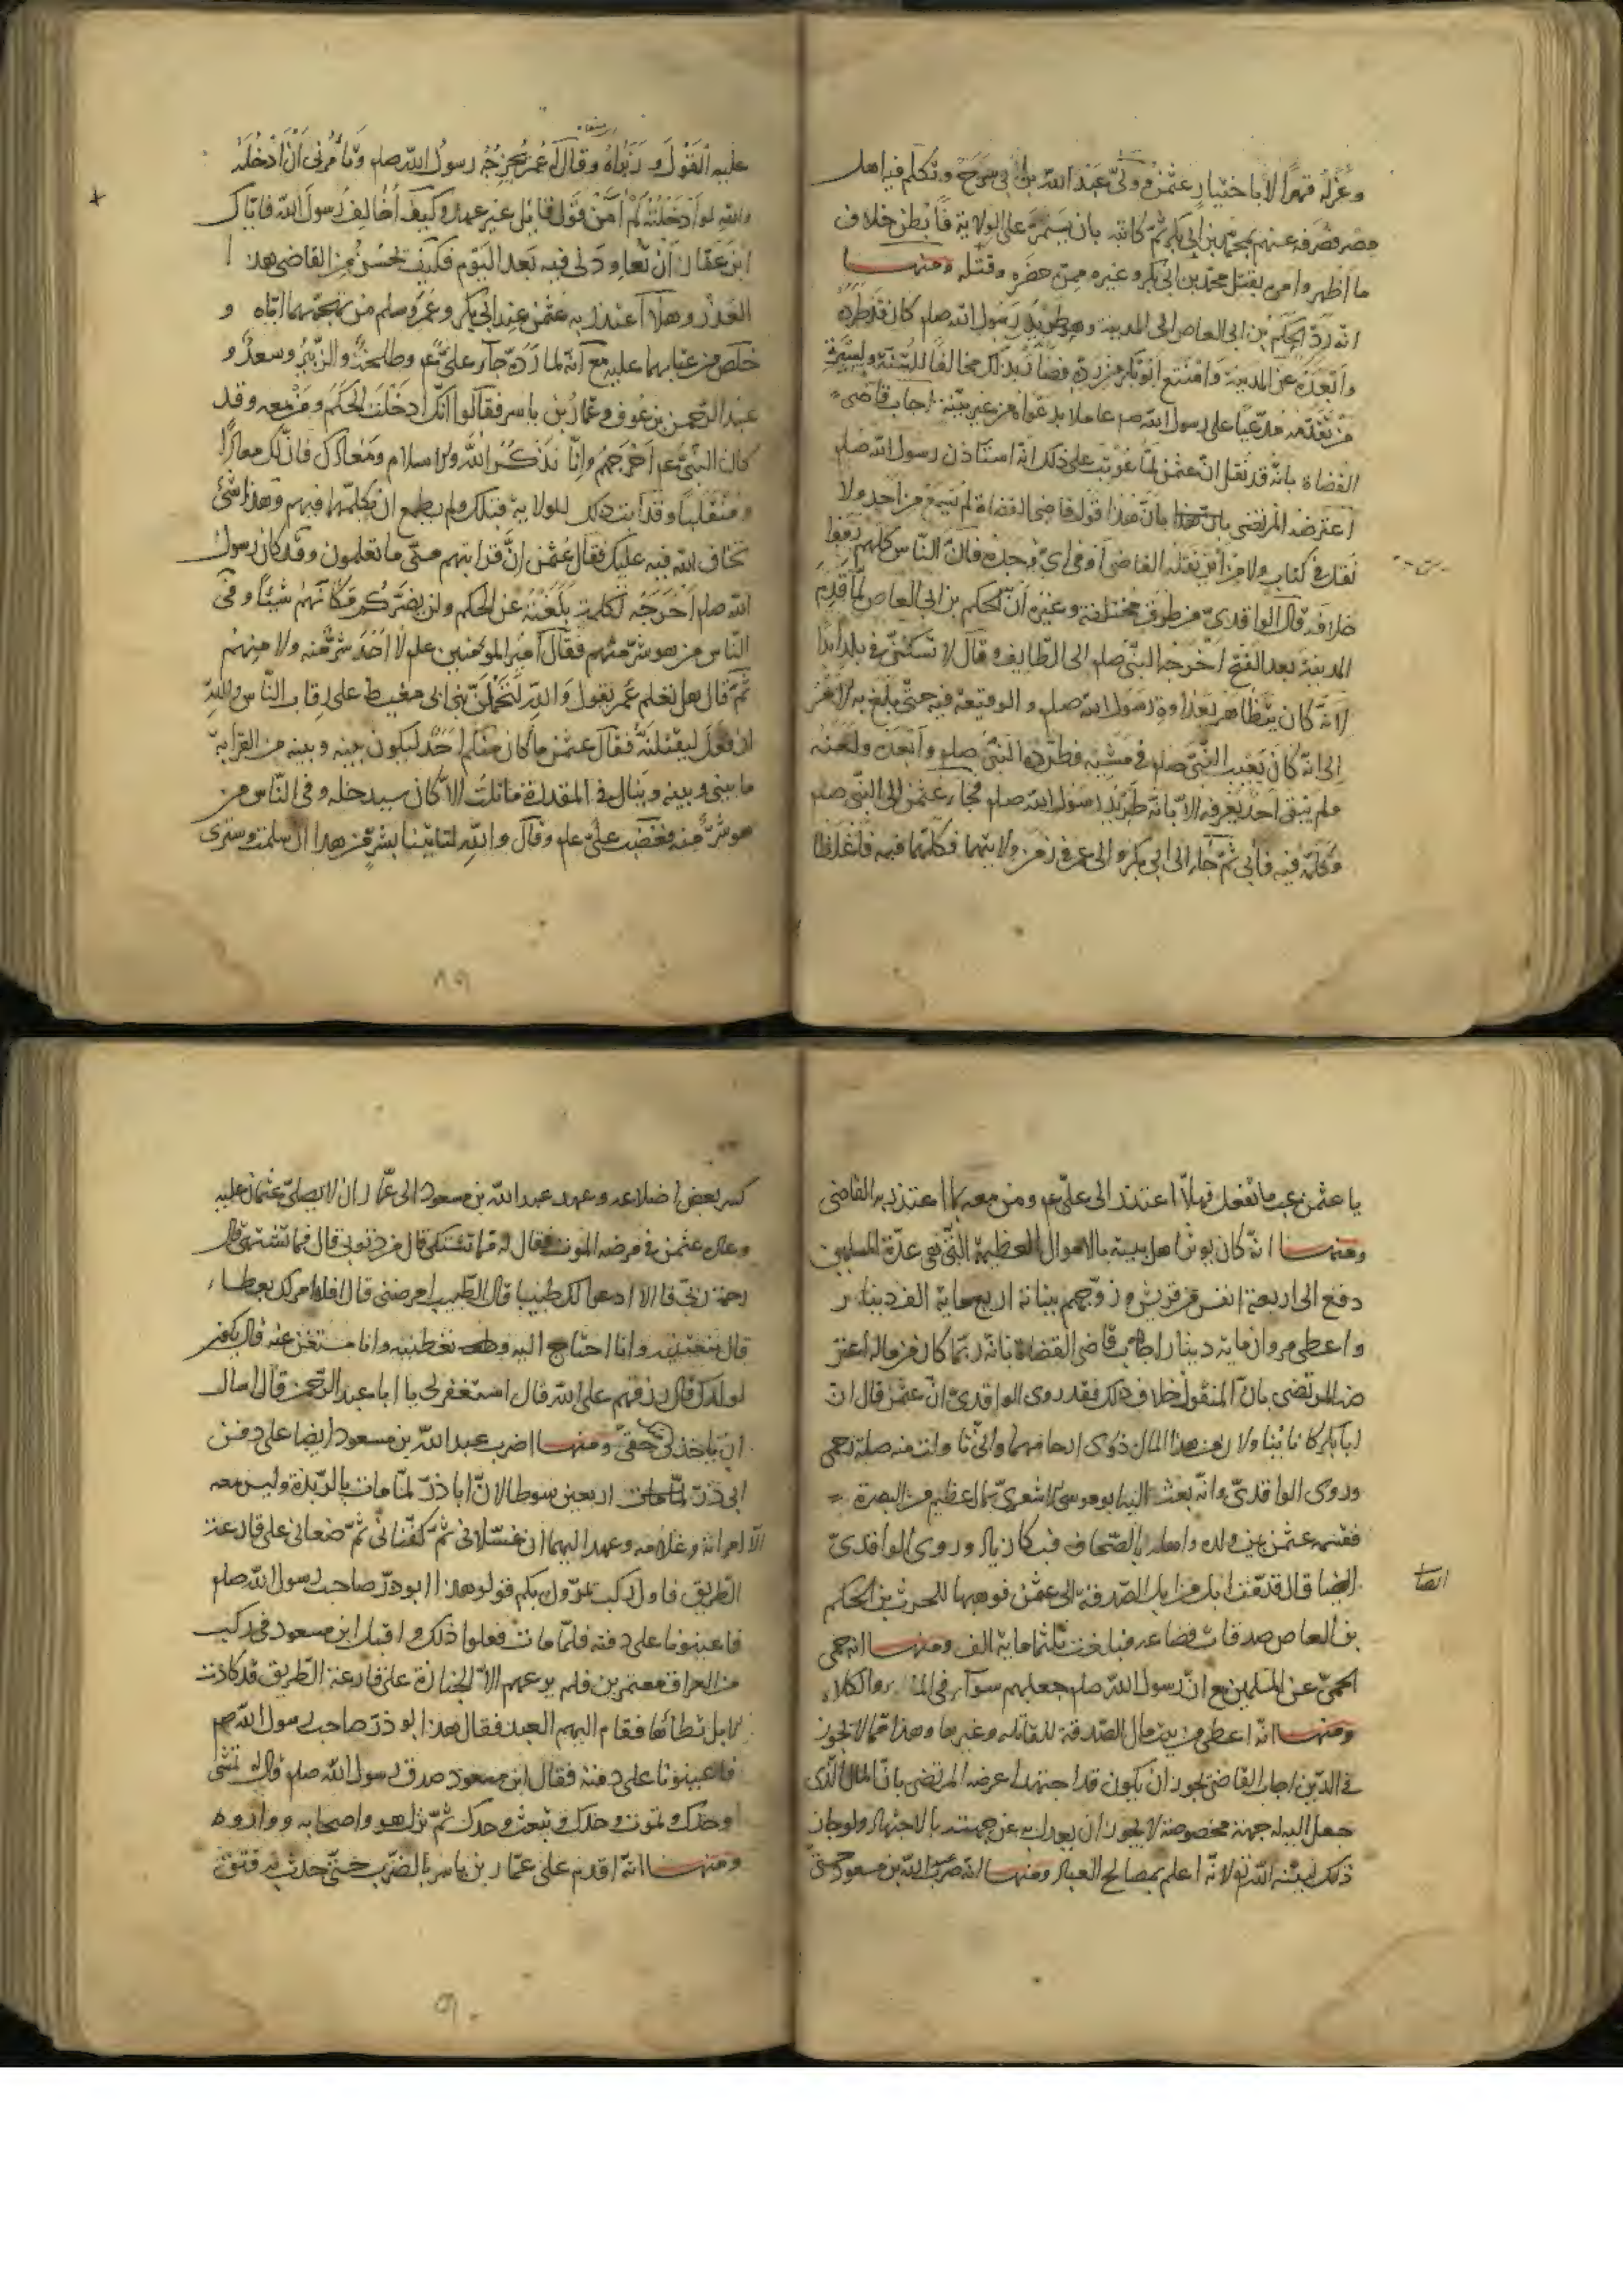 وعزله قهرا لا باختيار عثمن وولى عبد الله بن ابى سرح وتكلم فيه اهل
مصر فصرفه عنهم بمحمد بن ابى بكر ثم كاتبه بان يستمر على الولاية فابطن خلاف
ما اظهر وامره بقتل محمد بن ابى بكر وغيره ممن حضره وقتله ومنها
انه رد الحكم بن ابى العاص الى المدينة وهو طريد رسول الله صلم كان قد طرده
وابعده عن المدينة وامتنع ابو بكر من رده فصار بذلك مخالفا للسنة ولسيرة
من تقدمه مدعيا على رسول الله صم عاملا بدعواه من غير بينة اجاب قاضى
القضاة بانه قد نقل ان عثمن لما عوتب على ذلك انه استاذن رسول الله صلم
اعترضه المرتضى بان هذا قول قاضى القضاة لم يسمع من احد ولا
نقل فى كتاب ولا من اين نقله القاضى او فى اى وجده فان الناس كلهم رووا
خلافه قال الواقدى من طرق مختلفة وغيره ان الحكم بن ابى العاص لما قدم
المدينة بعد الفتح اخرجه النبى صلم الى الطايف وقال لا تسكننى فى بلد ابدا
لانه كان يتظاهر بعداوة رسول الله صلم والوقيعة فيه حتى بلغ به الامر
الى انه كان يعيب النبى صلم فى مشيه فطرده النبى صلم وابعده ولعنه
فلم يبق احد يعرفه الا بانه طريد رسول الله صلم فجاء عثمن الى النبى صلم
وكلمه فيه فابى ثم جاء الى ابى بكر والى عمر فى زمن ولايتهما فكلمهما فيه فاغلظا
عليه القول وزبراه وقال له عمر يخرجه رسول الله صلم وتأمرنى ان ادخله
والله لو ادخلته لم آمن قول قايل غير عهده وكيف اخالف رسول الله فاياك
ابن عفان ان تعاودنى فيه بعد اليوم فكيف تحسن من القاضى هذا
العذر وهلا اعتذر به عثمن عند ابى بكر وعمر وسلم من تهجمهما اياه و
خلص من عتابهما عليه مع انه لما رده جآء على ع وطلحة والزبير وسعد و
عبد الرحمن بن عوف وعمار بن ياسر فقالوا انك ادخلت الحكم ومن معه وقد
كان النبى ع اخرجهم وانا نذكرك الله والاسلام ومعادك فان لك معادا
ومنقلبا وقد ابت ذلك الولاية قبلك ولم يطمع ان يكلمهما فيهم وهذا شئ
نخاف الله فيه عليك فقال عثمن ان قرابتهم منى ما تعلمون وقد كان رسول
الله صلم اخرجه لكلمة بلغته عن الحكم ولن يضركم مكانهم شيئا وفى
الناس من هو شر منهم فقال امير المؤمنين علم لا احد شر منه ولا منهم
ثم قال هل تعلم عمر يقول والله لتحملن بنى ابى معيط على رقاب الناس والله
ان فعل ليقتلنه فقال عثمن ما كان منكم احد ليكون بينه وبينه من القرابة
ما بينى وبينه وينال فى المقدرة ما نلت الا كان سيدخله وفى الناس من
هو شر منه فغضب على علم وقال والله لتاتينا بشر من هذا ان سلمت وسترى
٨٩
يا عثمن غب ما تفعل فهلا اعتذر الى على ع ومن معه بما اعتذر به القاضى
ومنها انه كان يوثر اهل بيته بالاموال العظيمة التى هى عدة المسلمين
دفع الى اربعة انفس من قريش وزوجهم ببناته اربعماية الف دينار
واعطى مروان ماية دينار اجاب قاضى القضاة بانه ربما كان من ماله اعتر
ضه المرتضى بان المنقول خلاف ذلك فقد روى الواقدى ان عثمن قال ان
ابا بكر كانا ينا ولان من هذا المال ذوى ارحامهما وانى نا ولت منه صلة رحمى
وروى الواقدى وانه بعث اليه ابو موسى الاشعرى بمال عظيم من البصرة
فقسمه عثمن بين ولده واهله بالصحاف فبكا زياد وروى الواقدى
ايضا قال قدمت ابل من ابل الصدقة الى عثمن فوهبها للحرث بن الحكم
بن العاص صدقات قضاعة فبلغت ثلثماية الف ومنها انه حمى
الحمى عن المسلمين مع ان رسول الله صلم جعلهم سوآء فى الماء والكلاء
ومنها انه اعطى من بيت مال الصدقة للمقاتلة وغيرها وهذا مما لا يجوز
فى الدين اجاب القاضى يجوز ان يكون قد اجتهد اعرضه المرتضى بان المال الذى
جعل الله له جهة مخصوصة لا يجوز ان يعدل به عن جهته بالاجتهاد ولو جاز
ذلك لبينه الله تع لانه اعلم بمصالح العباد ومنها انه ضرب عبد الله بن مسعود حتى
ايضا
كسر بعض اضلاعه وعهد عبد الله بن مسعود الى عمار ان لا يصلى عثمان عليه
وعاده عثمن فى مرضه الموت فقال له مما تشتكى قال من ذنوبى قال فما تشتهى قال
رحمة ربى قال الا ادعوا لك طبيبا قال الطبيب امرضنى قال افلا امر لك بعطاء
قال منعتنيه وانا احتاج اليه وتعطينيه وانا مستغن عنه قال يكون
لولدك قال رزقهم على الله قال استغفر لى يا ابا عبد الرحمن قال اسال
ان ياخذ لى حقى ومنها اضرب عبد الله بن مسعود ايضا على دفن
ابى ذر اربعين سوطا لان ابا ذر لما مات بالربذة وليس معه
الا امراته وغلامه وعهد اليهما ان غسلانى ثم كفنانى ثم ضعانى على قارعة
الطريق فاول ركب يمرون بكم قولوا هذا ابو ذر صاحب رسول الله صلم
فاعينونا على دفنه فلما مات فعلوا ذلك واقبل ابن مسعود فى ركب
من العراق معتمرين فلم يرعهم الا الجنازة على قارعة الطريق قد كادت
الابل تطاها فقام اليهم العبد فقال هذا ابو ذر صاحب رسول الله صم
فاعينونا على دفنه فقال ابن مسعود صدق رسول الله صلم قال له تمشى
وحدك وتموت وحدك وتبعث وحدك ثم نزل هو واصحابه وواروه
ومنها انه اقدم على عمار بن ياسر بالضرب حتى حدث به فتق
٩٠